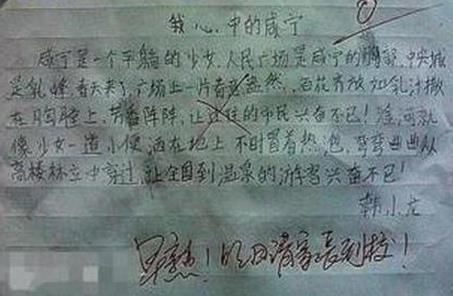 我心中的咸宁
咸宁是一个平躺的少女,人民广场是咸宁的胸部,中央城
是乳峰。春天来了,广场上一片春意盎然,百花齐放如乳汁撒
在胸膛上,芳香阵阵,让过往的市民兴奋不已!淦河就
像少女一道小便洒在地上不时冒着热泡,弯弯曲曲从
高楼林立中穿过,让全国到温泉的游客兴奋不已!
韩小龙
早熟!明日请家长到校!